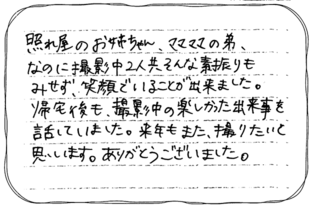 照れ屋のお姉ちゃん、ママママの弟、
なのに撮影中2人共そんな素振りも
みせず、笑顔でいることが出来ました。
帰宅後も、撮影中の楽しかった出来事を
話していました。来年もまた、撮りたいと
思います。ありがとうございました。